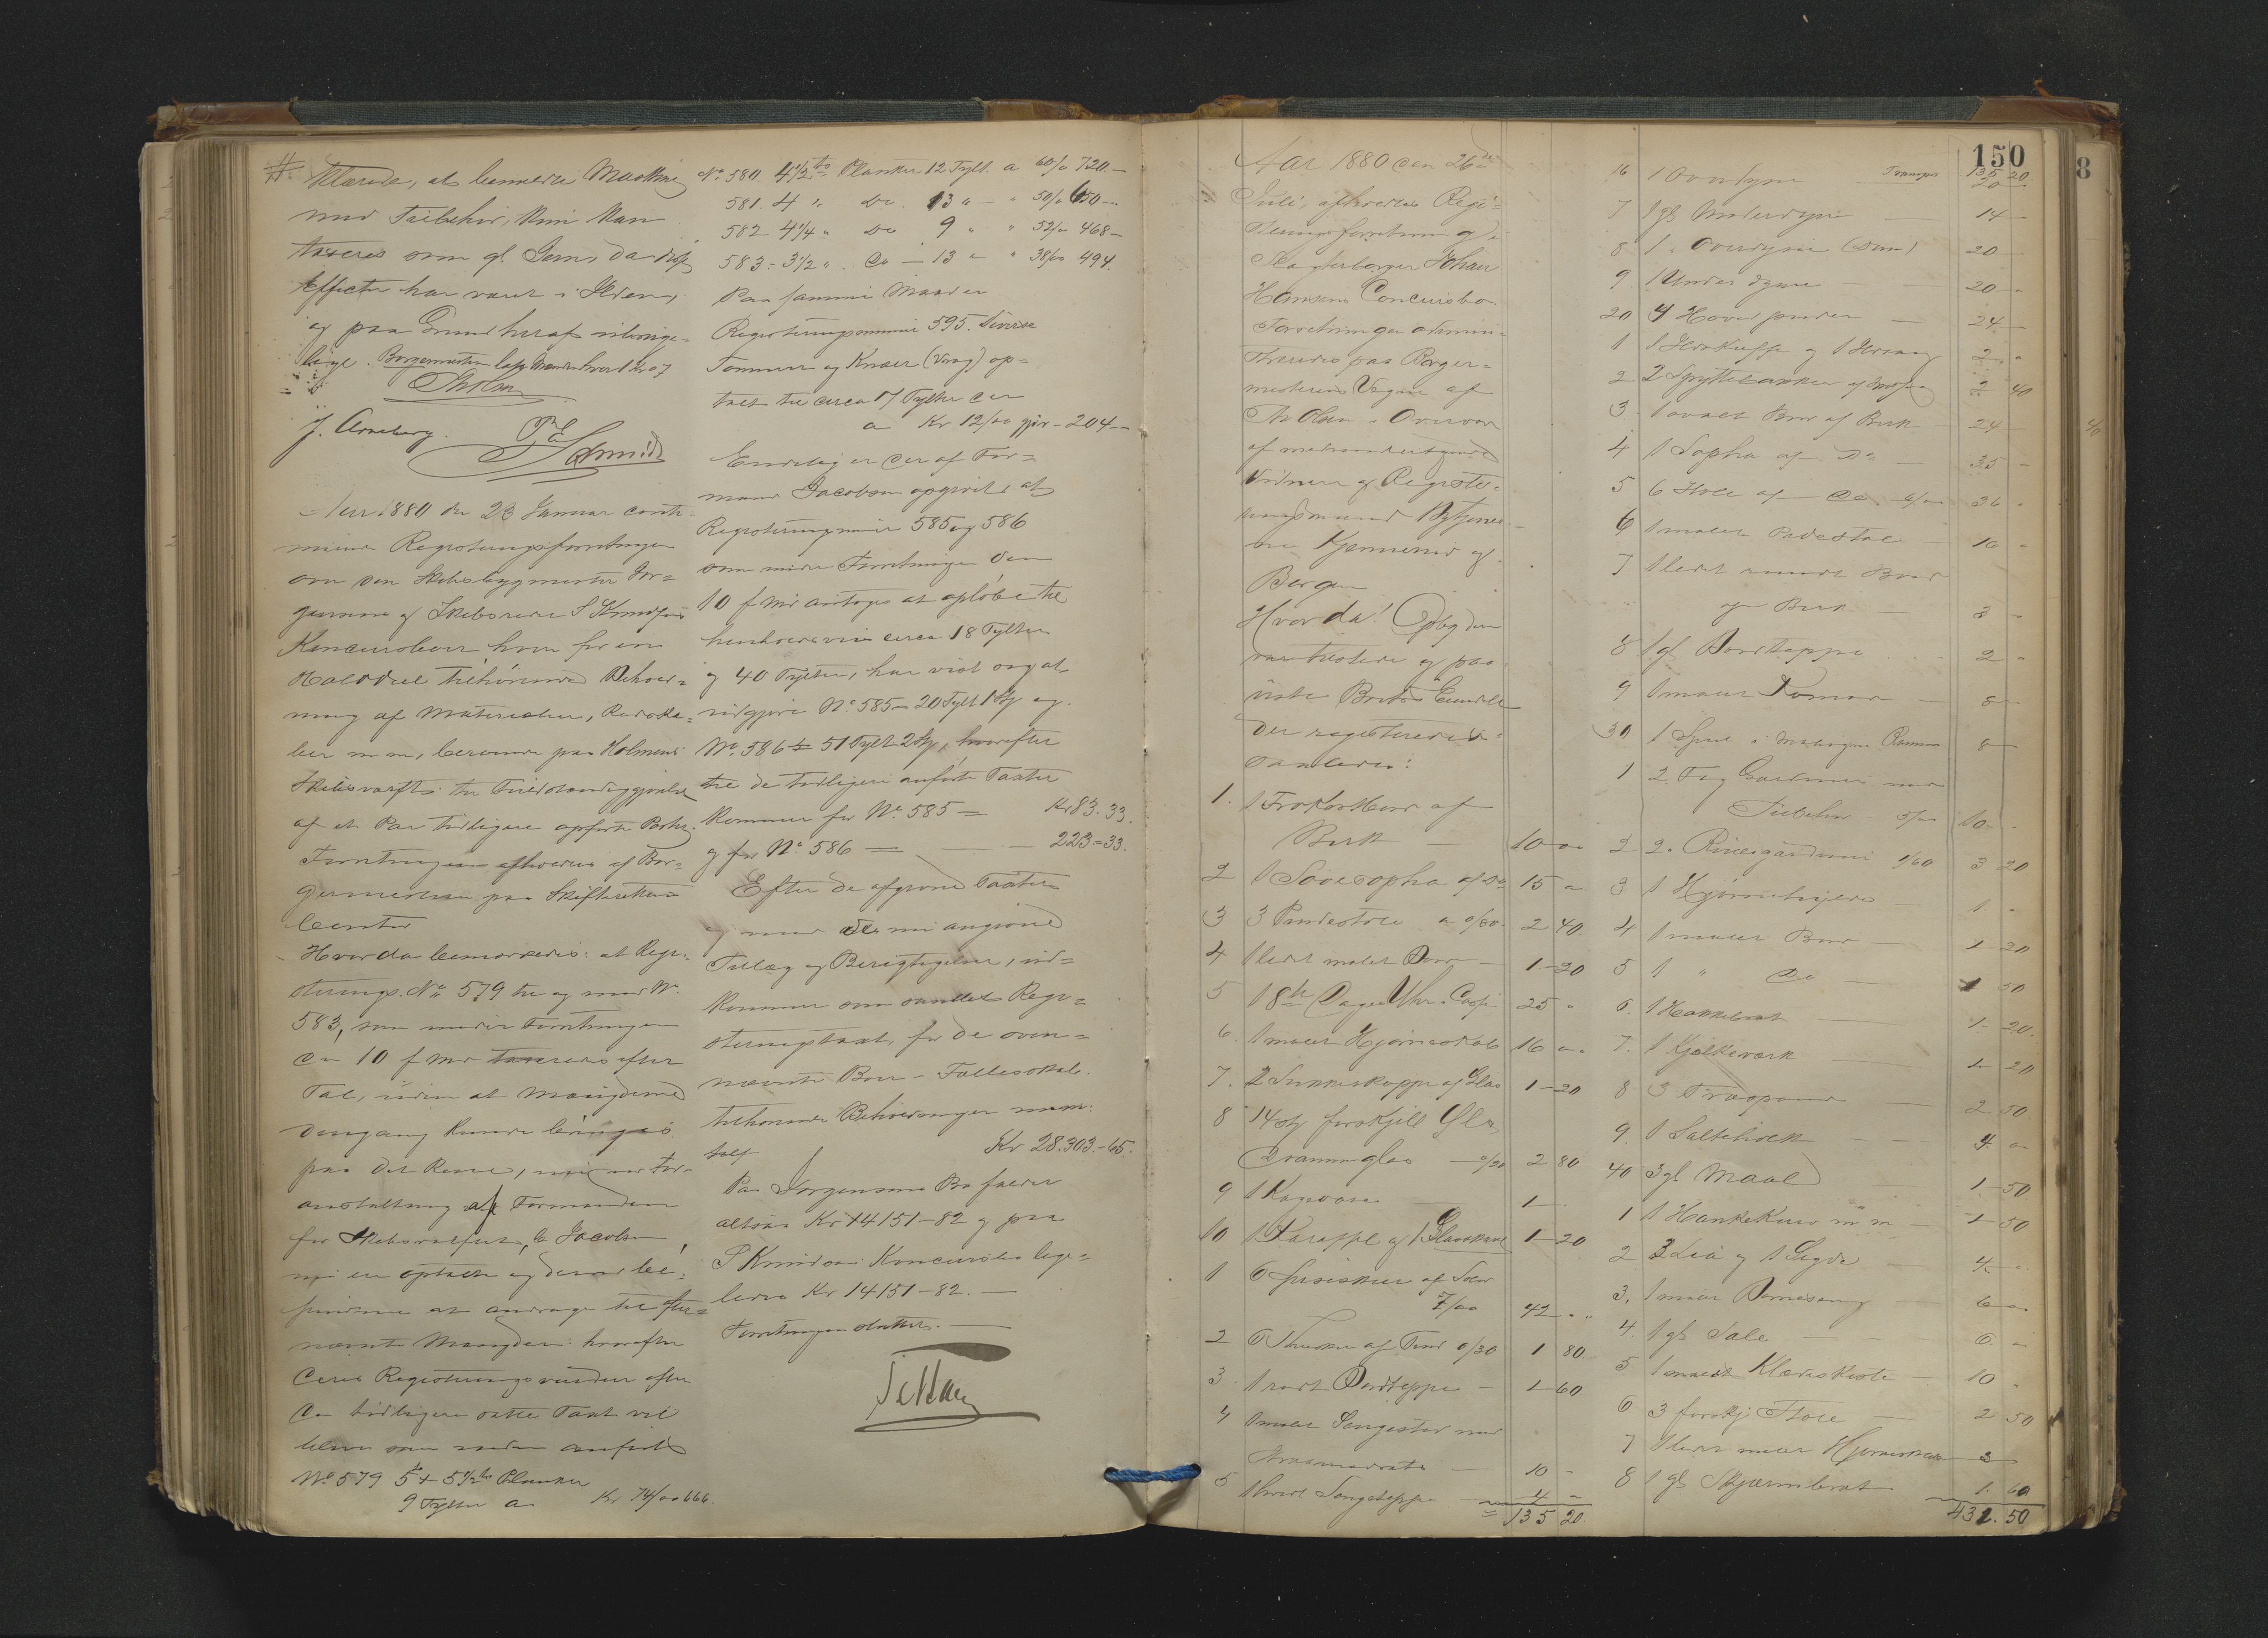 klærede, at bemeldte Maskine
med Tilbehør, kun kan
taxeres som gl. Jern, da disse
Effecter har været i Ilden,
og paa Grund heraf ubruge-
lige. Borgermesteren
Th Olsen
J. Arneberg.
Schmidt
Aar 1880 den 23 Januar conti-
nueredes Registreringsforretningen
over den Skibsbygmester Jør-
gensens og Skibsreder S Knudsens
Koncursboer hver for en
Halvdeel tilhørende Behold-
ning af Materialier, Redska-
ber m m, beroende paa Holmens
Skibsværft til Fuldstændiggjørelse
af et Par tidligere opførte Poster.
Forretningen afholdtes af Bor-
germesteren paa Skifterettens
Contor
Hvorda bemærkedes: at Regi-
sterings No 579 til og med No
583, som under Forretningen
den 10 f Md taxeredes efter
Tal, uden at Mængderne
dengang kunde bringes
paa det Rene, nu ved For-
anstaltning af Formanden
for Skibsværftet, Jacobsen,
nu ere optalte og derved be-
fundne at andrage til efter-
nævnte Mængder: hvorefter
deres Registreringsværdier efter
den tidligere satte Taxt vil
blive som neden anført
No 579 5 to + 5 1/2 to Planker
9 Tylter a Kr 74/00 666.
No 580. 4 1/2 to Planker 12 Tylt. a 60/00 720.—
581. 4 " do. 13 " — " 50/00 650—
582 4 1/4 " do 9 " " 52/00 468—
583 = 3 1/2 " do — 13 " " 38/00 494.
Paa samme Maade er
Registreringsnummer 595. diverse
Tømmer og Knæer (Vrag) op-
talt til circa 17 Tylter der
a Kr 12/00 gjør — 204—
Endelig er der af For-
mand Jacobsen opgivet, at
Registreringsnumer 585 og 586
som under Forretningen den
10 f Md antoges at opløbe til
henholdsvis circa 18 Tylter
og 40 Tylter, har vist sig at
udgjøre No. 585 = 20 Tylt 1 St og
No. 586 = 51 Tylt 2 St, hvorefter
til de tidligere anførte Taxter
kommer for No. 585 = Kr 83.33.
og for No. 586 = — 223=33.
Efter de afgivne Taxter
og med de nu angivne
Tillæg og Berigtigelser, ud-
kommer som samlet Regi-
streringstaxt, for de oven-
nævnte Boer i Fællesskab
tilhørende Beholdninger
Kr 28.303.-65.
Paa Jørgensens Bo falder
altsaa Kr 14151-82 og paa
S Knudsens Koncursbo lige-
ledes Kr 14151-82.—
Forretningen sluttet.
150
Aar 1880 den 26de
Juli, afholdtes Regi-
streringsforretning i
Slagterborger Johan
Hansens Concursbo.
Forretningen admini-
streredes paa Borger-
mesterens Vegne af
Th Olsen i Overvær
af medundertegnede
Vidner og Registre-
ringsmænd
Kjennerud og
Berger
Hvorda! Opbyden
var tilstede og paa-
viste Boets Eiendele
der registreredes
saaledes:
1. 1 Frokostbord af
Birk — 10 00
2 1 Sovesopha af Do 15 "
3 3 Pindestole a 0/80. 2 40
4 1 lidet malet Bord — 1.-20
5 1 8te Dages Uhr i Casse 25 "
6. 1 malet Hjørneskab 16 "
7. 2 Sukkerkopper af Glas 1-20
8 14 St forskjell Glas
Dramglas — 0/20 2 80
9 1 Kagevase 1 —
10 1 Karaffel og 1 Glasskaal 1-20
1 6 Spiseskeer af Sølv
7/00 42 "
2 6 Theskeer af Tind 0/30 1 80
3. 1 rødt Bordteppe — 1-60
4 1 malet Sengested med
Straamadrats — 10 "
5 1 hvidt Sengeteppe 4 "
135 20.
Transport 135 20
16 1 Overdyne 20 —
7 1 gl Underdyne — 14 —
8 1 . Overdyne (Dun) 20 —
9 1 Underdyne — 20 "
20 4 Hovedpuder — 24 —
1 1 Ildskuffe og 1 Ildtang 2 "
2 2 Spyttebakker af Messing 2 40
3 1 ovalt Bord af Birk — 24 —
4 1 Sopha af Do — 35 —
5 6 Stole af — do. 6/00 36 "
6 1 malet Pedestal — 10 "
7 1 lidet rundt Bord
af Birk — 3 —
8 1 gl Bordteppe 2 "
9 1 malet Komode — 8 —
30 1 Speil i Mahogni Ramme 8 —
1 2 Fag Gardiner med
Tilbehør 5/00 10 —
2 2 . Rullegardiner 1/60 3 20
3 1 Hjørnehylde — 1. "
4 1 malet Bord — 1-20
5 1 " do — 1 50
6. 1 Hakkebræt — 1-20.
7. 1 Kjelkeværk — 1-20
8. 3 Træspand — 2 50
9. 1 Saltehvelk — 4 "
40 3 gl Maal — 1.-50
1 1 Hankekurv m m — 1 50
2 3 Lia og 1 Sigde — 4 "
3. 1 malet Børneseng — 6 "
4. 1 gl Sale — 6. "
5 1 malet Klædeskiste — 10 "
6 3 forskj. Stole — 2 50
7 1 lidet malet Hjørneskab 3 —
8 1 gl Skjærmbræt 1. 60
431.50
8